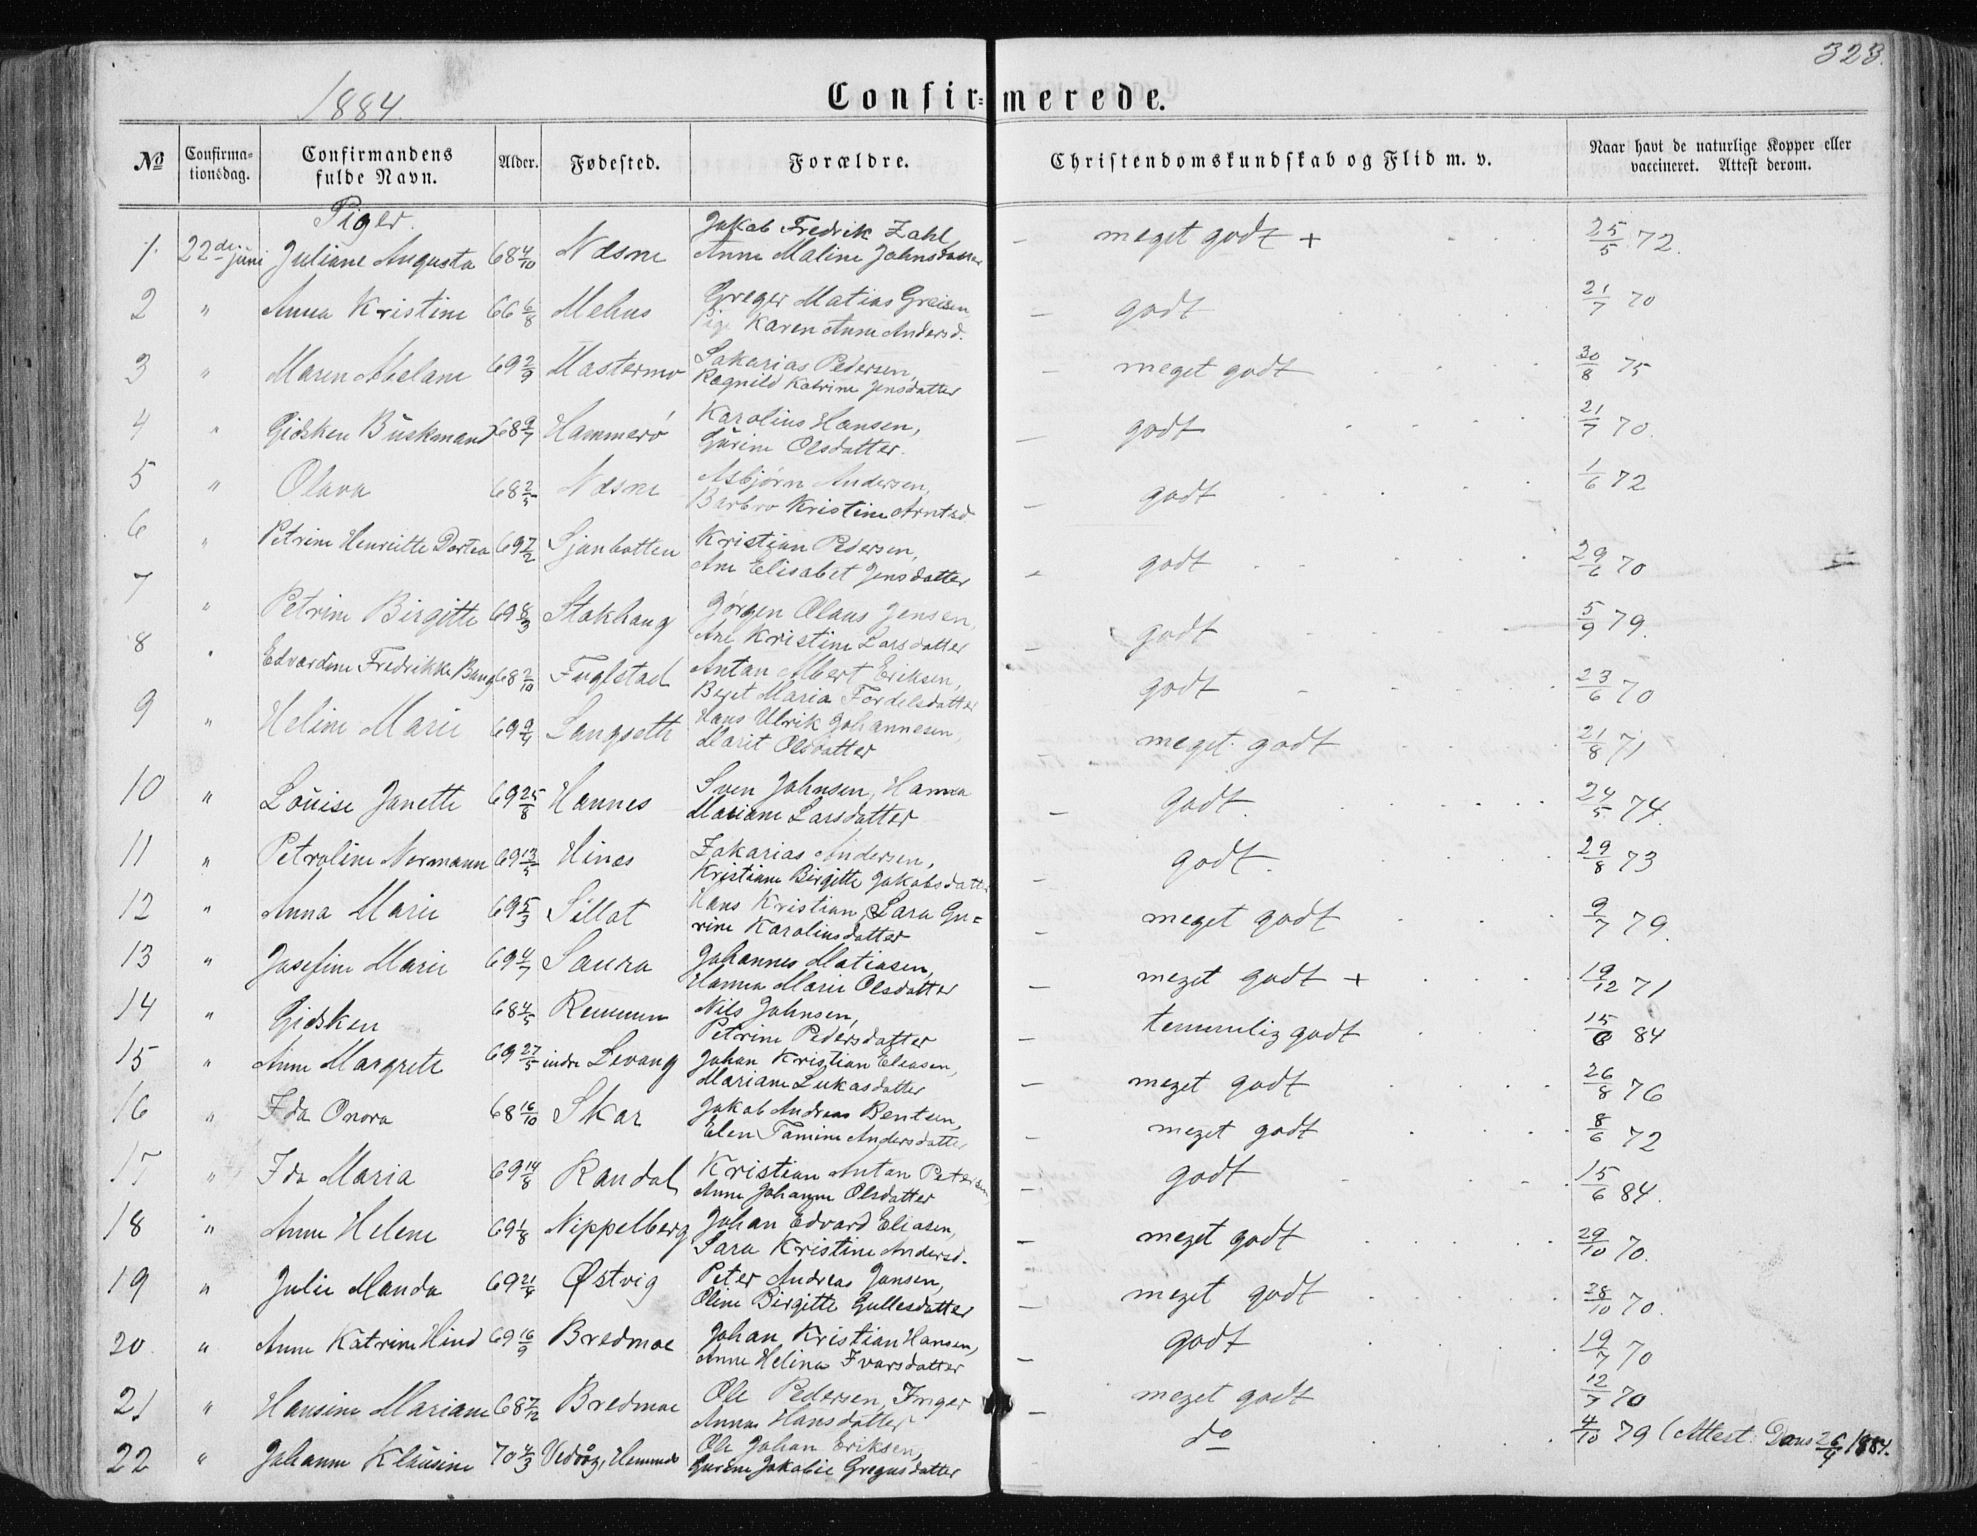 323.
1884.
Confirmerede.
№ Confirmationsdag. Confirmandens fulde Navn. Alder. Fødested. Forældre. Christendomskundskab og Flid m. v. Naar havt de naturlige Kopper eller vaccineret. Attest derom.
Piger.
1. 22de juni Juliane Augusta 68 4/10 Næsne Jakob Fredrik Zahl, Anne Maline Johnsdatter – meget godt + 25/5 72.
2 " Anna Kristine 66 6/8 Mehus Greger Matias Greisen Pige Karen Anne Andersd. – godt 21/7 70
3 " Maren Melane 69 2/9 Mastermo Sakarias Pedersen, Ragnild Katrine Jensdatter – meget godt 30/8 75
4 " Gidsken Buskmand 68 9/7 Hammerö Karolius Hansen, Gurine Olsdatter. – godt 21/7 70.
5 " Olava 68 2/5 Næsne Asbjørn Andersen, Barbro Kristine Arntsd. – godt 1/6 72
6 " Petrine Henriette Dortea 69 7/2 Sjonbotten Kristian Pedersen, Ane Elisabet Jensdatter – godt 29/6 70
7 " Petrine Birgitte 69 8/3 Stokhaug Jørgen Olaus Jensen, Ane Kristine Larsdatter – godt 5/9 79.
8 " Edvardine Fredrikke Bang 68 2/10 Fuglstad Antan Albert Eriksen, Beret Maria Fordelsdatter – godt 23/6 70
9 " Heline Marie 69 9/4 Langseth Hans Ulrik Johannesen, Marit Olsdatter – meget godt 21/8 71
10 " Louise Janette 69 25/8 Hannes Sven Johnsen, Hanna Mariane Larsdatter – godt. 24/5 74.
11 " Petroline Normann 69 13/5 Hinæs Zakarias Andersen, Kristiane Birgitte Jakobsdatter – godt. 29/8 73
12 " Anna Marie 69 5/3 Sillot Hans Kristian, Sara Gu= rine Karoliusdatter – meget godt 9/7 79.
13 " Josefine Marie 69 4/7 Saura Johannes Matiasen, Hanna Marie Olsdatter – meget godt + 19/12 71
14 " Gidsken 68 4/5 Remmen Nils Johnsen, Petrine Pedersdatter temmelig godt 15/6 84
15 " Anne Margrete 69 27/5 indre Levang Johan Kristian Eliasen, Mariane Lukasdatter – meget godt 26/8 76
16 " Ida Onora 68 16/10 Skar Jakob Andreas Bentsen, Elen Tamine Andersdatter – meget godt 8/6 72
17 " Ida Maria 69 14/8 Randal Kristian Antan Petersen, Anne Johanne Olsdatter – godt 15/6 84.
18 " Anne Helene 69 1/8 Nippelberg Johan Edvard Eliasen, Sara Kristine Andersd. – meget godt 29/10 70.
19 " Julie Manda 69 21/4 Østvig Peter Andreas Jansen, Oline Birgitte Gullesdatter – meget godt 28/10 70.
20. " Anne Katrine Hind 69 16/9 Bredmoe Johan Kristian Hansen, Anne Helina Ivarsdatter – godt 19/7 70
21 " Hansine Mariane 68 7/12 Bredmoe Ole Pedersen, Inger Anna Hansdatter – meget godt 12/7 70
22 " Johanne Klausine 70 4/3 Vedaag, Hemnes Ole Johan Eriksen, Gurine Jakobie Gregusdatter do 4/10 79 (Attest: Dans 26/9 1884.